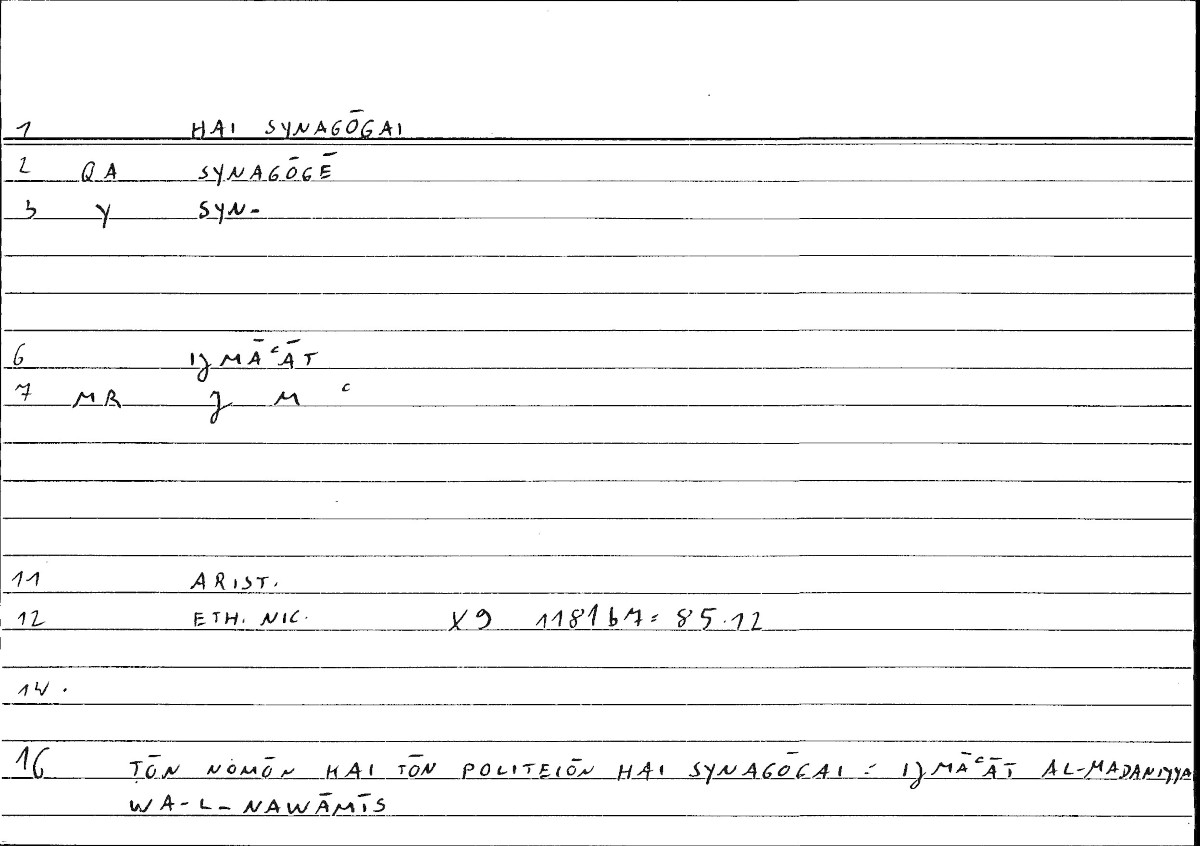 1 HAI SYNAGŌGAI
2 QA SYNAGŌGĒ
3 Y SYN-
6 IJMĀʿĀT
7 MR J M ʿ
11 ARIST.
12 ETH. NIC. X9 1181b7 = 85.12
14.
16 TŌN NOMŌN KAI TŌN POLITEIŌN HAI SYNAGŌGAI = IJMĀʿĀT AL-MADANIYYA
WA-L-NAWĀMĪS